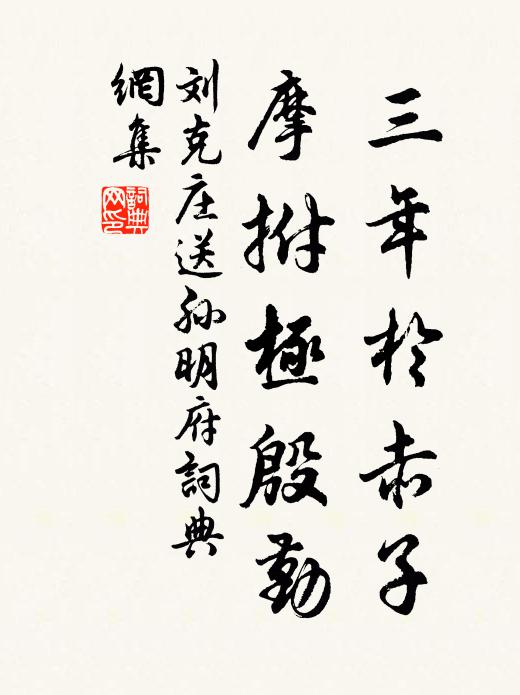 三年於赤子
摩拊極殷勤
刘克庄送孙明府詞典
網集
詞典
网印